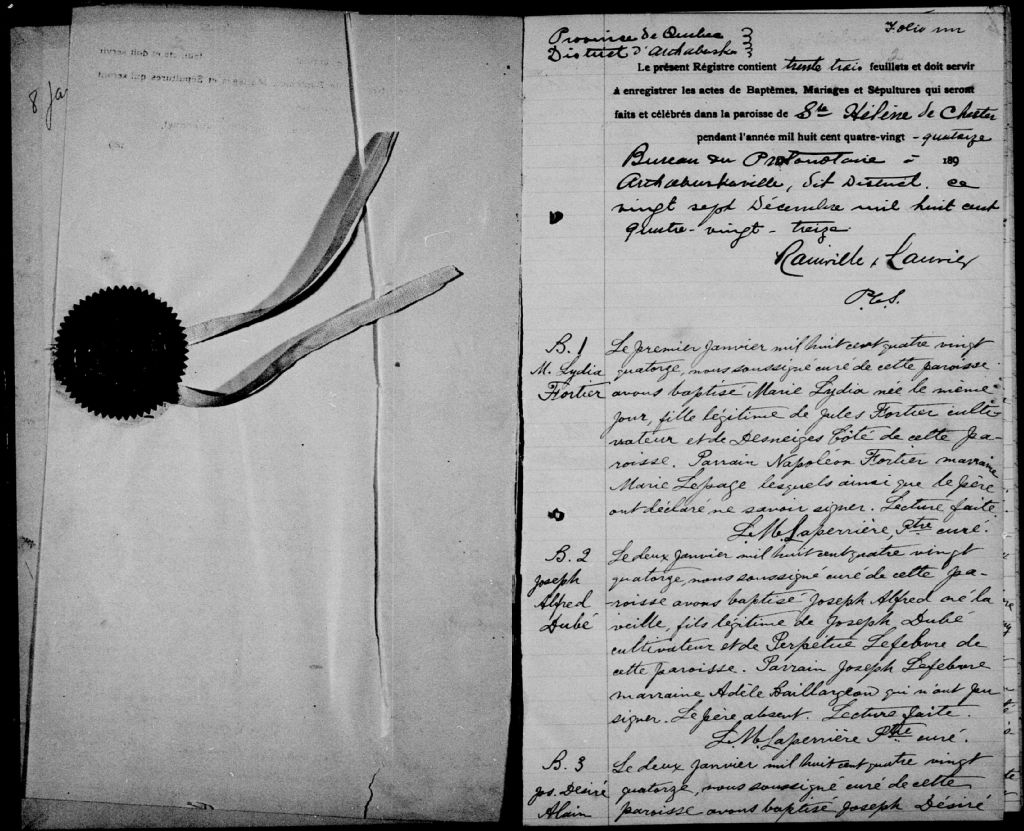 8 Jan
Folio un
Province de Québec
District d'Arthabaska
Le présent Régistre contient trente trois feuillets et doit servir
à enregistrer les actes de Baptêmes, Mariages et Sépultures qui seront
faits et célébrés dans la paroisse de Ste Hélène de Chester
pendant l'année mil huit cent quatre-vingt - quatorze
Bureau du Protonotaire - 189
Arthabaskaville, dit District. ce
vingt sept Décembre mil huit cent
quatre-vingt - treize
Rainville & Laurier
P.C.S.
B. 1
M. Lydia
Fortier
Le premier janvier mil huit cent quatre vingt
quatorze, nous soussigné curé de cette paroisse
avons baptisé Marie Lydia née le même
jour, fille légitime de Jules Fortier culti-
vateur et de Desneiges Côté de cette pa-
roisse. Parrain Napoléon Fortier marraine
Marie Lepage lesquels ainsi que le père
ont déclaré ne savoir signer. Lecture faite.
L. M. Laperrière, Ptre curé.
B. 2
Joseph
Alfred
Dubé
Le deux janvier mil huit cent quatre vingt
quatorze, nous soussigné curé de cette pa-
roisse avons baptisé Joseph Alfred né la
veille, fils légitime de Joseph Dubé
cultivateur et de Perpétue Lefebvre de
cette paroisse. Parrain Joseph Lefebvre
marraine Adèle Baillargeon qui n'ont pu
signer. Le père absent. Lecture faite.
L. M. Laperrière Ptre curé.
B. 3
Jos. Désiré
Alain
Le deux janvier mil huit cent quatre vingt
quatorze, nous soussigné curé de cette
paroisse avons baptisé Joseph Désiré